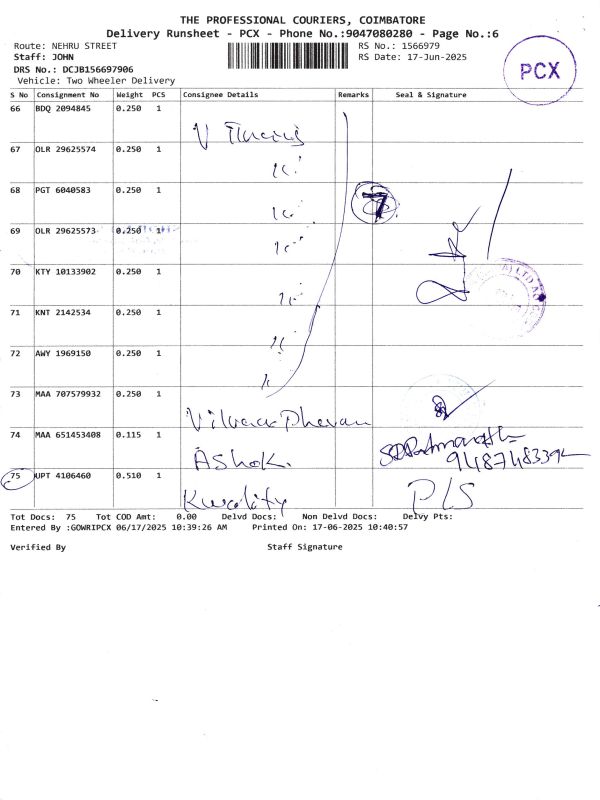 THE PROFESSIONAL COURIERS, COIMBATORE
Delivery Runsheet - PCX - Phone No.:9047080280 - Page No.:6
Route: NEHRU STREET
RS No.: 1566979
Staff: JOHN
RS Date: 17-Jun-2025
DRS No.: DCJB156697906
Vehicle: Two Wheeler Delivery
PCX
S No Consignment No Weight PCS Consignee Details Remarks Seal & Signature
66 BDQ 2094845 0.250 1
67 OLR 29625574 0.250 1
68 PGT 6040583 0.250 1
7
69 OLR 29625573 0.250 1
70 KTY 10133902 0.250 1
71 KNT 2142534 0.250 1
72 AWY 1969150 0.250 1
73 MAA 707579932 0.250 1
74 MAA 651453408 0.115 1
Ashok.
75 UPT 4106460 0.510 1
Kwality PLS
Tot Docs: 75 Tot COD Amt: 0.00 Delvd Docs: Non Delvd Docs: Delvy Pts:
Entered By :GOWRIPCX 06/17/2025 10:39:26 AM Printed On: 17-06-2025 10:40:57
Verified By Staff Signature